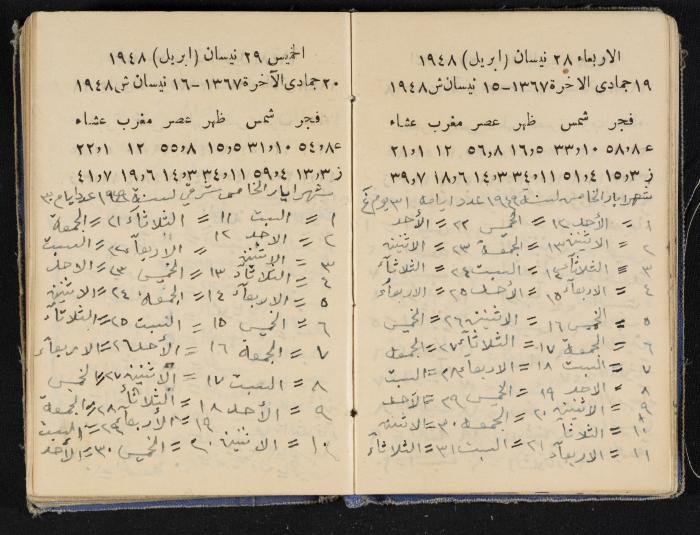 الاربعاء ٢٨ نيسان (ابريل) ١٩٤٨
١٩ جمادى الآخرة ١٣٦٧ – ١٥ نيسان ش ١٩٤٨
فجر شمس ظهر عصر مغرب عشاء
ع ٨ر٥٨ ١٠ر٣٣ ٥ر١٦ ٨ر٥٦ ١٢ ١ر٢١
ز ٣ر١٥ ٤ر٥١ ١١ر٣٤ ٣ر١٤ ٦ر١٨ ٧ر٣٩
شهر ايار الخامس لسنة ١٩٤٩ عدد ايامه ٣١ يوم غ
١ = الأحد ١٢ = الخميس ٢٢ = الأحد
٢ = الاثنين ١٣ = الجمعة ٢٣ = الاثنين
٣ = الثلاثاء ١٤ = السبت ٢٤ = الثلاثاء
٤ = الاربعاء ١٥ = الأحد ٢٥ = الاربعاء
٥ = الخميس ١٦ = الاثنين ٢٦ = الخميس
٦ = الجمعة ١٧ = الثلاثاء ٢٧ = الجمعة
٧ = السبت ١٨ = الاربعاء ٢٨ = السبت
٨ = الاحد ١٩ = الخميس ٢٩ = الأحد
٩ = الاثنين ٢٠ = الجمعة ٣٠ = الاثنين
١٠ = الثلاثا
١١ = الاربعاء ٢١ = السبت ٣١ = الثلاثاء
الخميس ٢٩ نيسان (ابريل) ١٩٤٨
٢٠ جمادى الآخرة ١٣٦٧ – ١٦ نيسان ش ١٩٤٨
فجر شمس ظهر عصر مغرب عشاء
ع ٨ر٥٤ ١٠ر٣١ ٥ر١٥ ٨ر٥٥ ١٢ ١ر٢٢
ز ٣ر١٣ ٤ر٥٩ ١١ر٣٤ ٣ر١٤ ٦ر١٩ ٧ر٤١
شهر ايار الخامس شرقي لسنة عدد ايام ٣٠
١ = السبت ١١ = الثلاثاء ٢١ = الجمعة
٢ = الاحد ١٢ = الاربعاء ٢٢ = السبت
٣ = الاثنين
٤ = الثلاثاء ١٣ = الخميس ٢٣ = الاحد
٥ = الاربعاء ١٤ = الجمعة ٢٤ = الاثنين
٦ = الخميس ١٥ = السبت ٢٥ = الثلاثاء
٧ = الجمعة ١٦ = الأحد ٢٦ = الاربعاء
٨ = السبت ١٧ = الأثنين ٢٧ = الخميس
٩ = الأحد ١٨ = الثلاثاء ٢٨ = الجمعة
١٩ = الأربعاء ٢٩ = السبت
١٠ = الاثنين ٢٠ = الخميس ٣٠ = الأحد